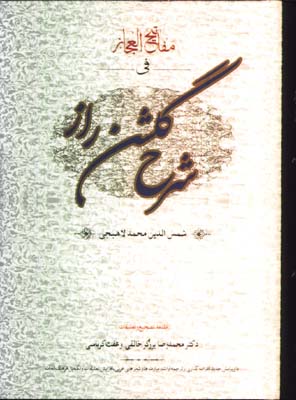 مفاتیح الاعجاز
فی
شرح گلشن راز
شمس الدین محمد لاهیجی
مقدمه، تصحیح و تعلیقات
دکتر محمدرضا برزگر خالقی و عفت کرباسی